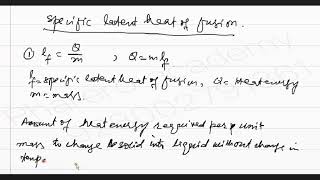 specific latent heat of fusion.
① lf = Q/m , Q = mlf
lf = specific latent heat of fusion, Q = Heat energy
m = mass.
Amount of heat energy required per unit
mass to change solid into liquid without change in
temp.